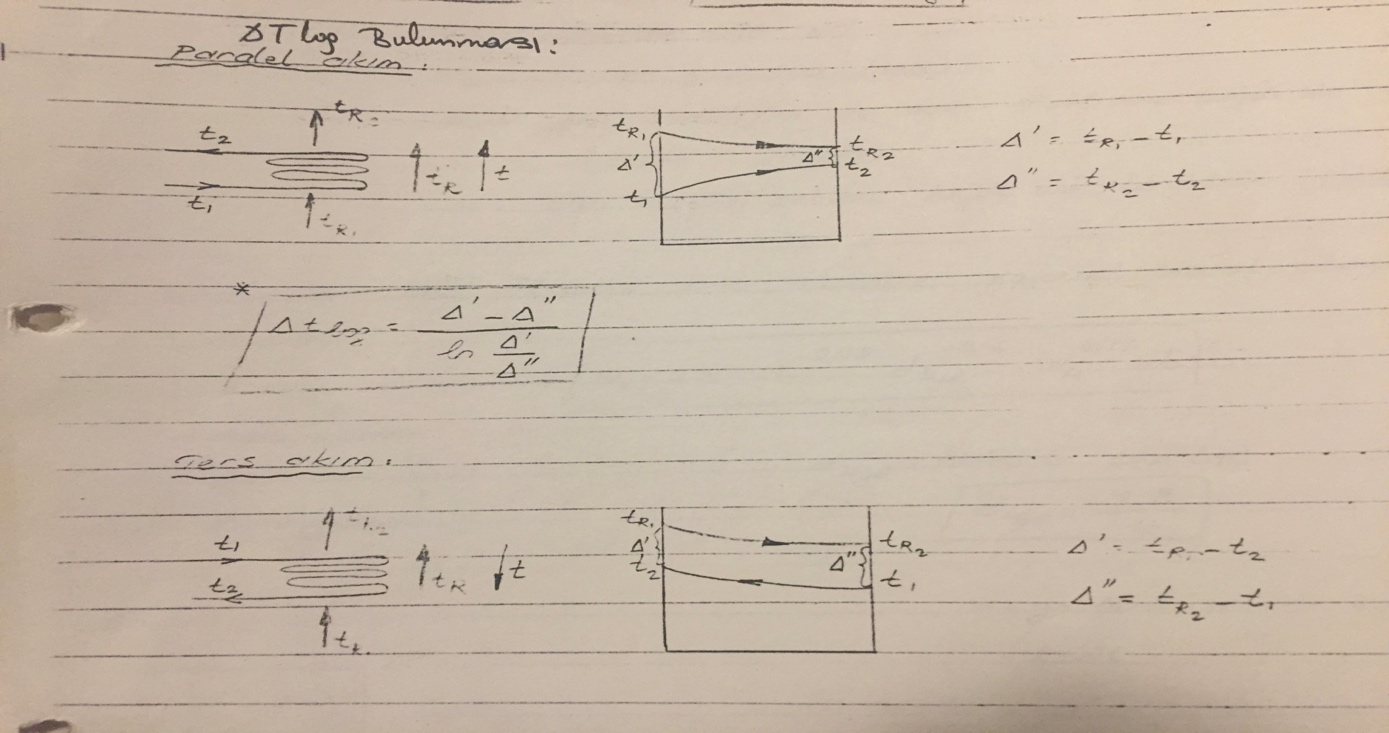 ΔT log Bulunması:
Paralel akım.
t_R2
t_2
t_R
t
t_1
t_R1
t_R1
Δ'
t_1
Δ"
t_R2
t_2
Δ' = t_R1 - t_1
Δ" = t_R2 - t_2
*
Δt log = (Δ' - Δ") / (ln Δ'/Δ")
Ters akım.
t_R2
t_1
t_2
t_R
t
t_R1
t_R1
Δ'
t_2
Δ"
t_R2
t_1
Δ' = t_R1 - t_2
Δ" = t_R2 - t_1